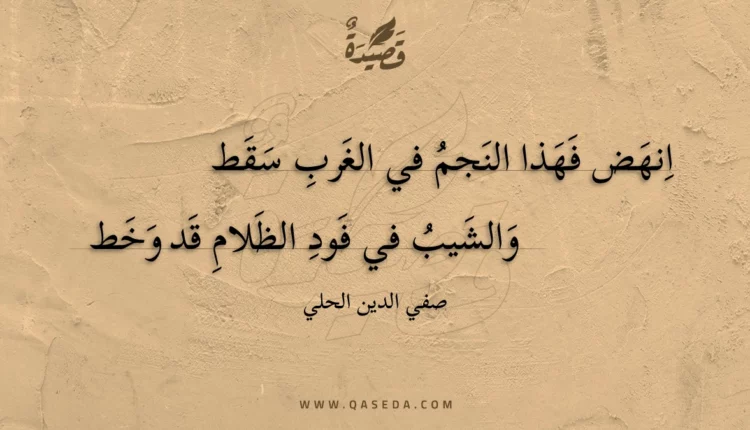 قَصِيْدَةٌ
اِنهَض فَهَذا النَجمُ في الغَربِ سَقَط
وَالشَيبُ في فَودِ الظَلامِ قَد وَخَط
صفي الدين الحلي
WWW.QASEDA.COM